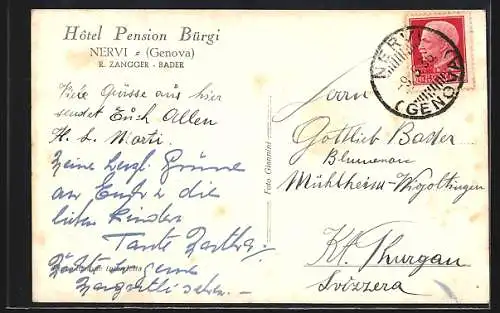 Hôtel Pension Bürgi
NERVI (Genova)
R. ZANGGER - BADER
Viele Grüsse aus hier
sendet Euch Allen
H. L. Marti.
Meine herzl. Grüsse
an Euch & die
lieben Kinder
Tante Bertha.
Foto Giannini
NERVI
(GENOVA)
Herrn
Gottlieb Bader
Blumenau
Mühlheim-Wigoltingen
Kt. Thurgau
Svizzera